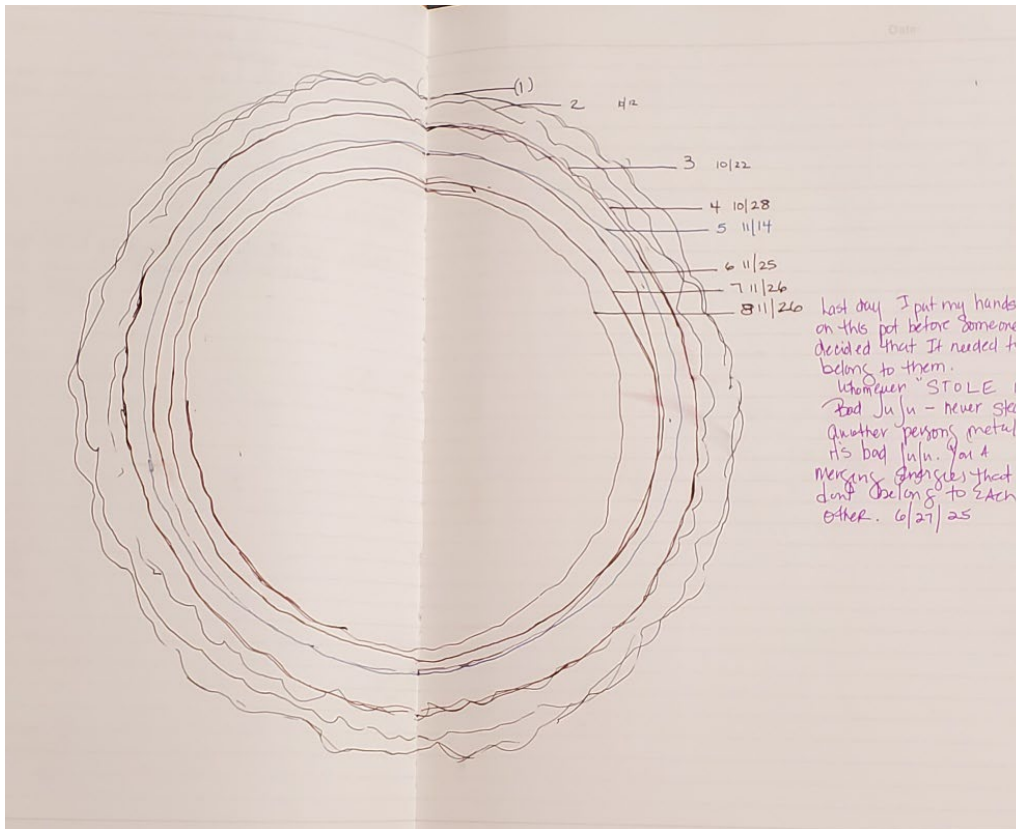 Date
(1)
2 11/12
3 10/22
4 10/28
5 11/14
6 11/25
7 11/26
8 11/26
Last day I put my hands
on this pot before someone
decided that It needed t
belong to them.
Whomever "STOLE
Bad JuJu – never ste
another persons metal
it's bad juju. You
merging Energies that
dont belong to EAch
OtheR. 6/27/25